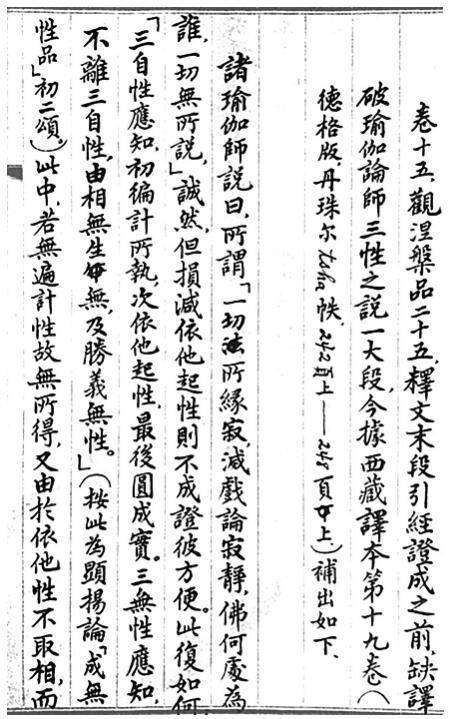 卷十五,觀涅槃品二十五,釋文末段引經證成之前,缺譯
破瑜伽論師三性之說一大段,今據西藏譯本第十九卷(
德格版,丹珠尔tsha帙,242頁上——248頁上)補出如下.
諸瑜伽師説曰,所謂「一切法所緣寂,滅戲論寂靜,佛何處為
誰,一切無所説,」誠然,但損減依他起性則不成證彼方便。此復如何,
「三自性應知,初徧計所執,次依他起性,最後圓成實。三無性應知,
不離三自性,由相無生無,及勝義無性。」(按此為顯揚論「成無
性品」初二頌。)此中,若無遍計性故無所得,又由於依他性不取相,而